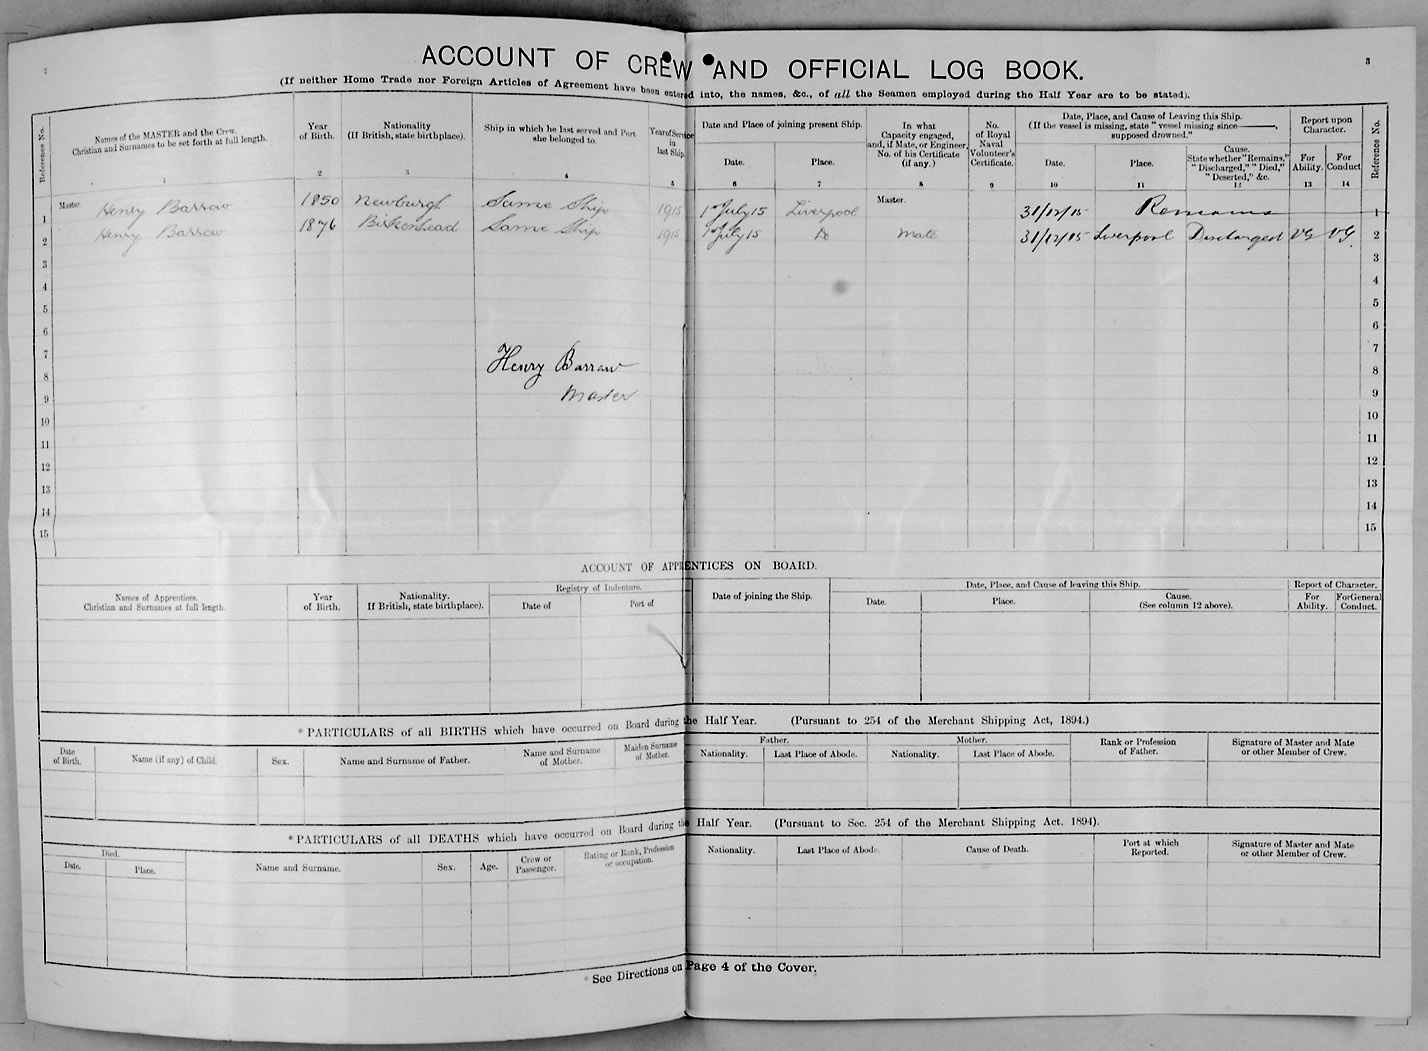 2
3
ACCOUNT OF CREW AND OFFICIAL LOG BOOK.
(If neither Home Trade nor Foreign Articles of Agreement have been entered into, the names, &c., of all the Seamen employed during the Half Year are to be stated).
Reference No.
Names of the MASTER and the Crew. Christian and Surnames to be set forth at full length.
Year of Birth.
Nationality (If British, state birthplace).
Ship in which he last served and Port she belonged to.
Year of Service in last Ship.
Date and Place of joining present Ship.
Date.
Place.
In what Capacity engaged, and, if Mate, or Engineer, No. of his Certificate (if any.)
No. of Royal Naval Volunteer's Certificate.
Date, Place, and Cause of Leaving this Ship.
(If the vessel is missing, state "vessel missing since ———, supposed drowned."
Date.
Place.
Cause. State whether "Remains," "Discharged," "Died," "Deserted," &c.
Report upon Character.
For Ability.
For Conduct
Reference No.
1 2 3 4 5 6 7 8 9 10 11 12 13 14
1 Master. Henry Barrow 1850 Newburgh Same Ship 1915 1 July 15 Liverpool Master. 31/12/15 Remains 1
2 Henry Barrow 1876 Birkenhead Same Ship 1915 1 July 15 Do Mate 31/12/15 Liverpool Discharged VG VG. 2
3 3
4 4
5 5
6 6
7 7
Henry Barrow
8 8
Master
9 9
10 10
11 11
12 12
13 13
14 14
15 15
ACCOUNT OF APPRENTICES ON BOARD.
Names of Apprentices. Christian and Surnames at full length.
Year of Birth.
Nationality. If British, state birthplace).
Registry of Indenture.
Date of
Port of
Date of joining the Ship.
Date, Place, and Cause of leaving this Ship.
Date.
Place.
Cause. (See column 12 above).
Report of Character.
For Ability.
For General Conduct.
* PARTICULARS of all BIRTHS which have occurred on Board during the Half Year. (Pursuant to 254 of the Merchant Shipping Act, 1894.)
Date of Birth.
Name (if any) of Child.
Sex.
Name and Surname of Father.
Name and Surname of Mother.
Maiden Surname of Mother.
Father.
Nationality.
Last Place of Abode.
Mother.
Nationality.
Last Place of Abode.
Rank or Profession of Father.
Signature of Master and Mate or other Member of Crew.
* PARTICULARS of all DEATHS which have occurred on Board during the Half Year. (Pursuant to Sec. 254 of the Merchant Shipping Act. 1894).
Died.
Date.
Place.
Name and Surname.
Sex.
Age.
Crew or Passenger.
Rating or Rank, Profession or occupation.
Nationality.
Last Place of Abode.
Cause of Death.
Port at which Reported.
Signature of Master and Mate or other Member of Crew.
* See Directions on Page 4 of the Cover.